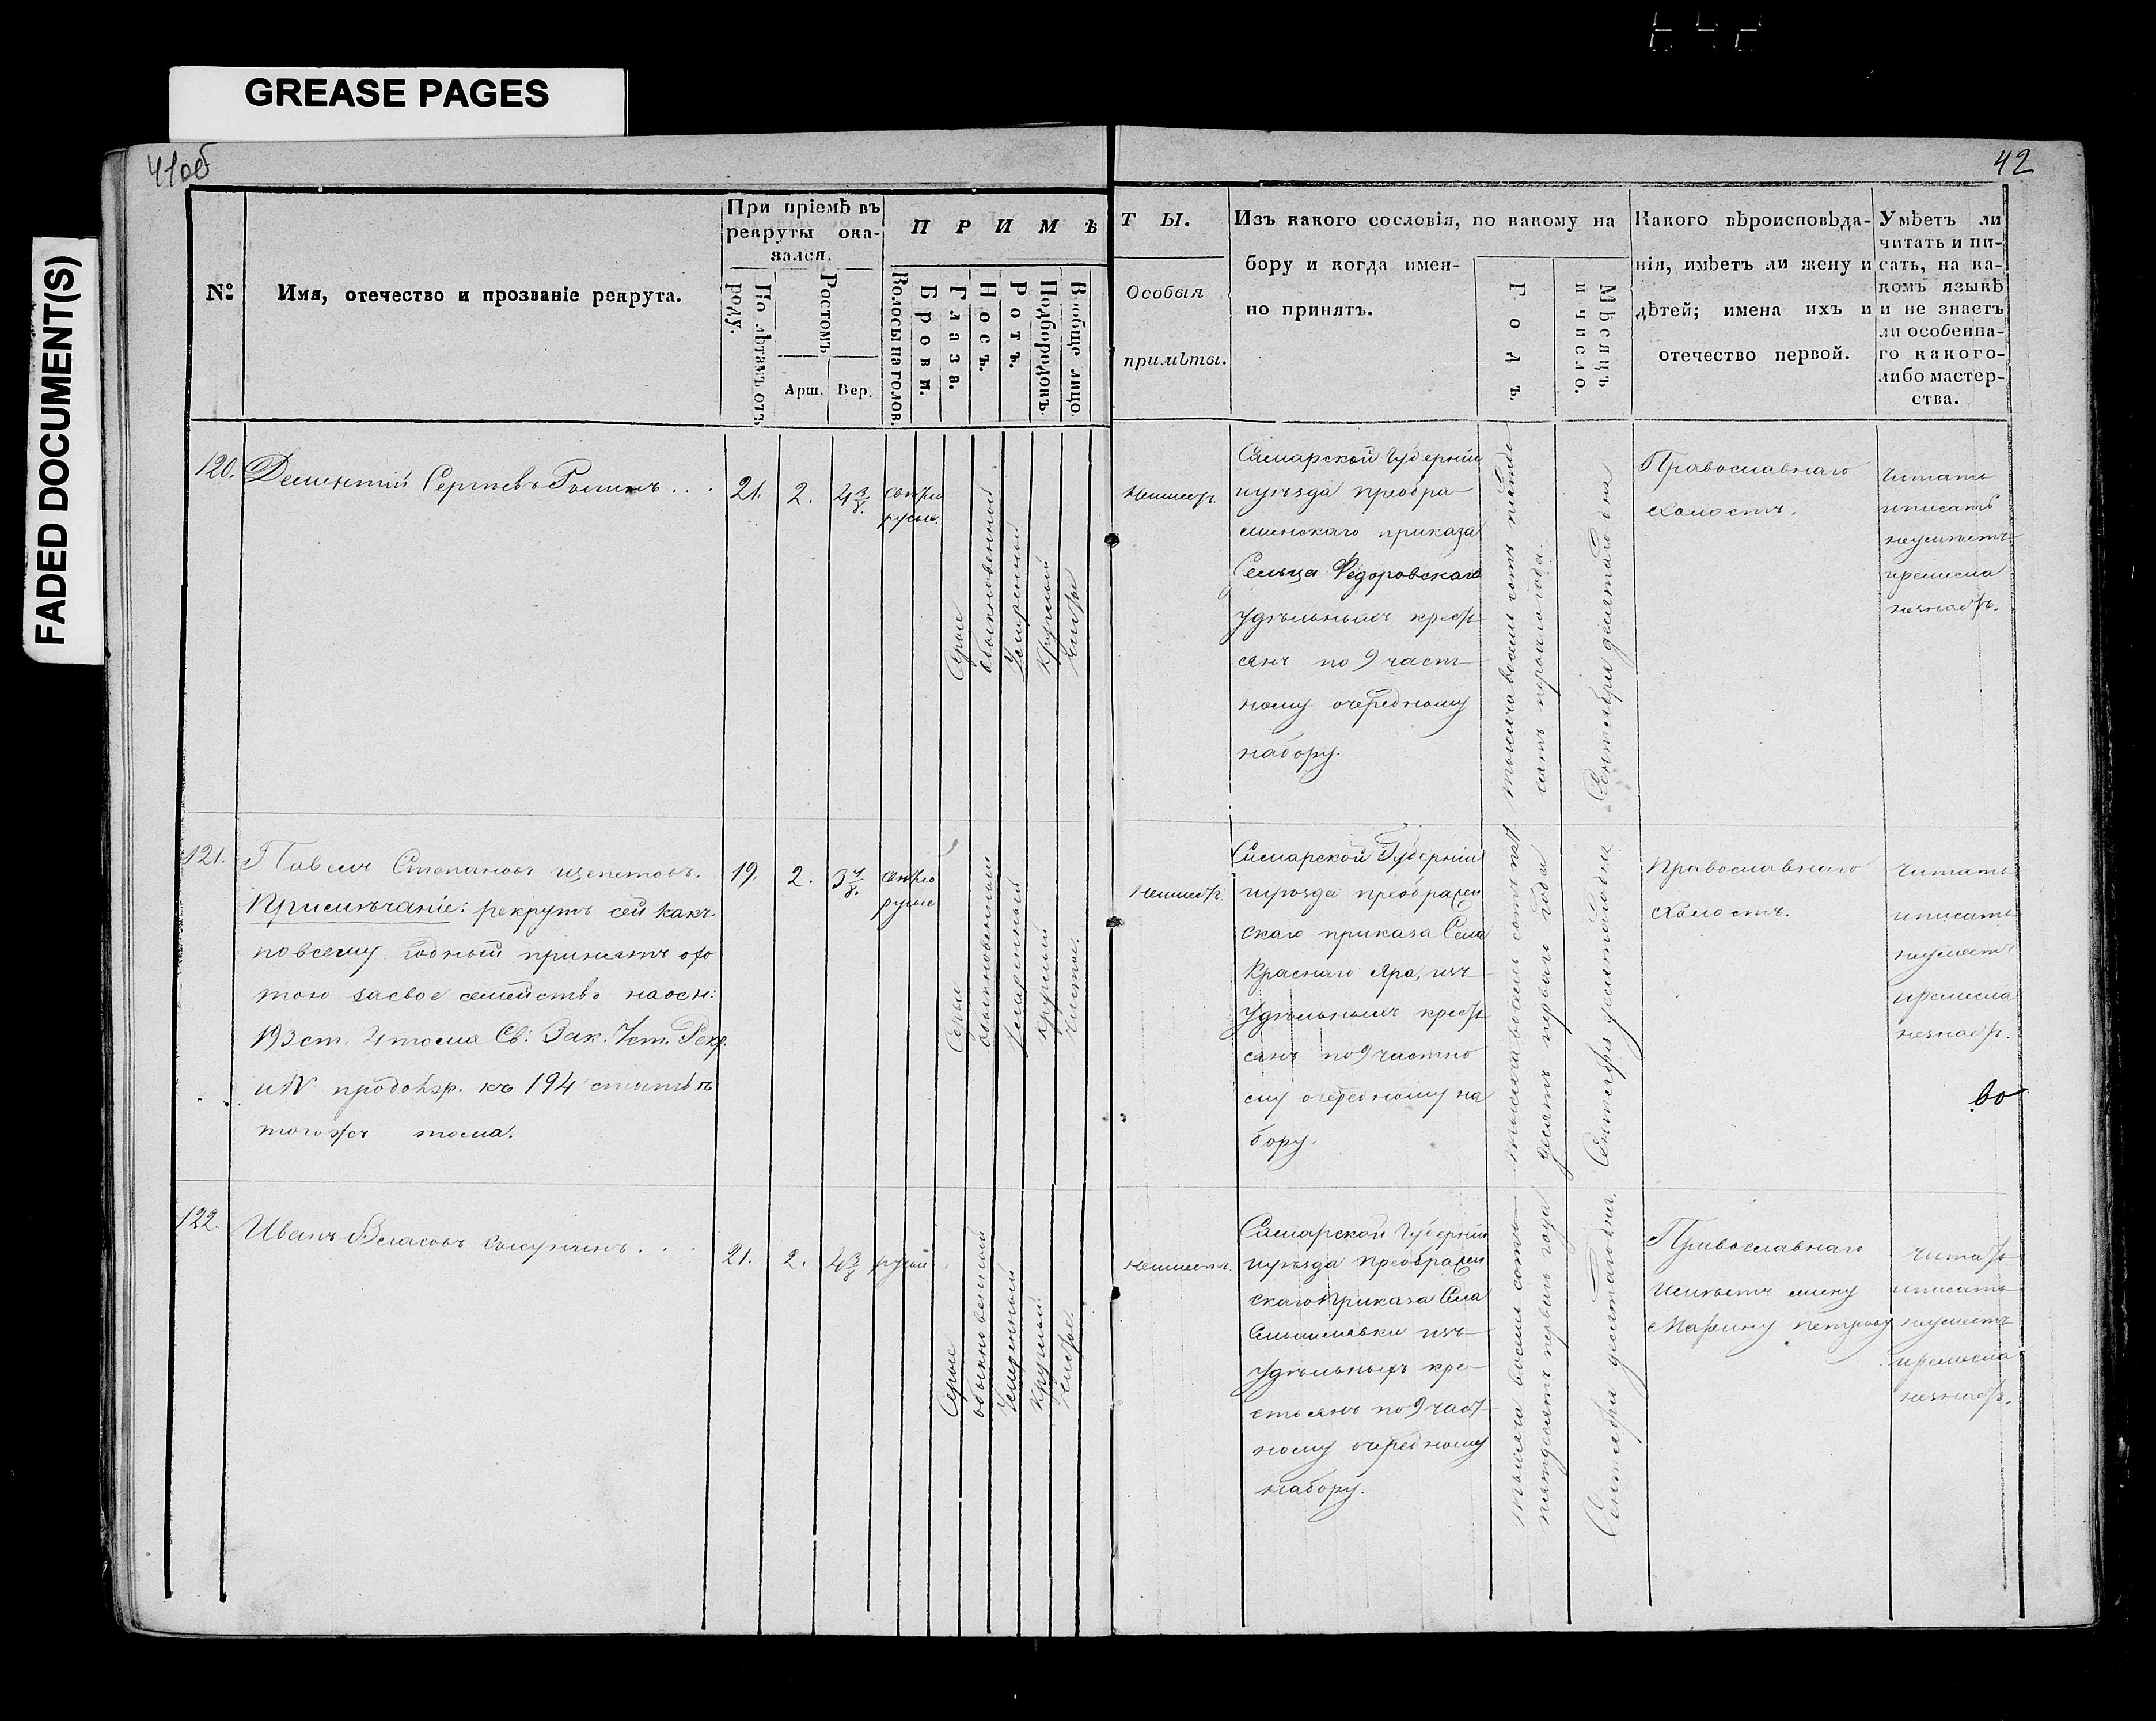 GREASE PAGES
FADED DOCUMENT(S)
41об
42
№
Имя, отечество и прозваніе рекрута.
При пріемѣ въ
рекруты ока-
зался.
По лѣтамъ отъ
роду.
Ростомъ
Арш.
Вер.
П Р И М Ѣ
Волосы на голов.
Брови.
Глаза.
Носъ.
Ротъ.
Подбородокъ.
Вообще лицо.
Т Ы.
Особыя
примѣты.
Изъ какого сословія, по какому на
бору и когда имен-
но принятъ.
Годъ.
Мѣсяцъ
и число.
Какого вѣроисповѣда-
нія, имѣетъ ли жену и
дѣтей; имена ихъ и
отечество первой.
Умѣетъ ли
читать и пи-
сать, на ка-
комъ языкѣ
и не знаетъ
ли особенна-
го какого-
либо мастер-
ства.
120.
Дементій Сергѣевъ
21.
2.
4 3/8.
свѣтло
русые.
Серые
обыкновенный
Умеренный
Круглый
чистое
Неимеетъ.
Самарской Губерніи
иуѣзда преобра-
женскаго приказа
Сельца Федоровскаго
Удѣльныхъ кресть
янъ по 9 част-
ному очередному
набору.
тысяча восемь сотъ пятьде
сятъ перваго года.
Сентября десятаго дня
Православнаго
холостъ.
Читать
иписать
неумѣетъ
иремесла
незнаетъ.
121.
Павелъ Степановъ щепетовъ.
Примѣчаніе: рекрутъ сей какъ
по всему годный принятъ охо
тою засвое семейство наосн:
193 ст. 4 тома Св: Зак. Уст. Рекр.
и IV продолж. къ 194 статьѣ
тогожъ тома.
19.
2.
3 4/8.
свѣтло
русые
Серые
обыкновенный
Умеренный
круглый
чистое.
Неимеетъ.
Самарской Губерніи
иуѣзда преображен
скаго приказа Села
Краснаго Яра, изъ
Удѣльныхъ кресть
янъ по 9 частно
му очередному на
бору.
тысяча восемь сотъ пять
десятъ перваго года
Сентября десятаго дня
Православнаго
холостъ.
Читать
иписать
неумѣетъ
иремесла
незнаетъ.
во
122.
Иванъ Власовъ
21.
2.
4 3/8
русые
Серые
обыкновенный
Умеренный
Круглый
чистое.
Неимеетъ.
Самарской Губерніи
иуѣзда преображен
скаго приказа Села
изъ
Удѣльныхъ кре-
стьянъ по 9 част
ному очередному
набору.
тысяча восемь сотъ
пятдесятъ перваго года
Сентября десятаго дня.
Православнаго
имѣетъ жену
Марину Петрову
читать
иписать
неумѣетъ
иремесла
незнаетъ.